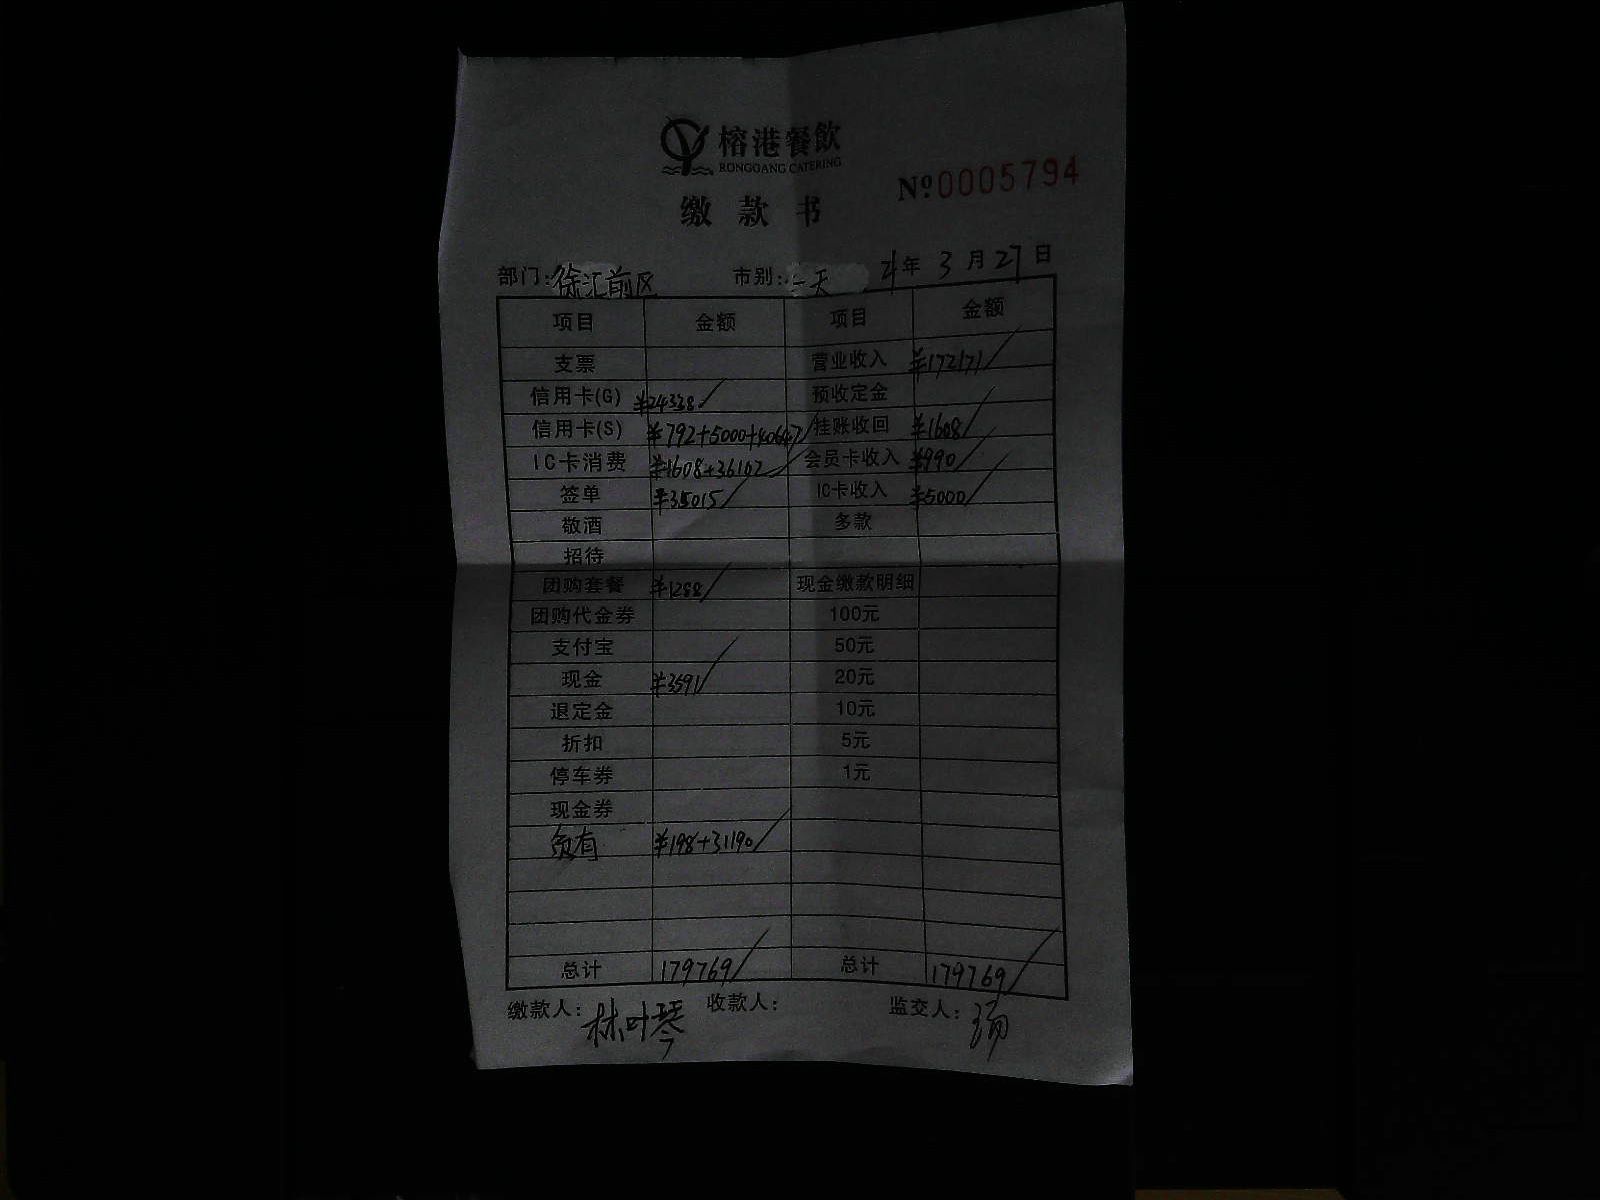 榕港餐飲
RONGGANG CATERING
缴款书
Nº 0005794
部门: 徐汇前区 市别: 一天 21年 3月 27日
项目 金额 项目 金额
支票 营业收入 ¥172171
信用卡(G) ¥24338 预收定金
信用卡(S) ¥792+5000+40647 挂账收回 ¥1608
IC卡消费 ¥1608+36102 会员卡收入 ¥990
签单 ¥35015 IC卡收入 ¥5000
敬酒 多款
招待
团购套餐 ¥1288 现金缴款明细
团购代金券 100元
支付宝 50元
现金 ¥3591 20元
退定金 10元
折扣 5元
停车券 1元
现金券
¥198+31190
总计 179769 总计 179769
缴款人: 林叶琴 收款人: 监交人: